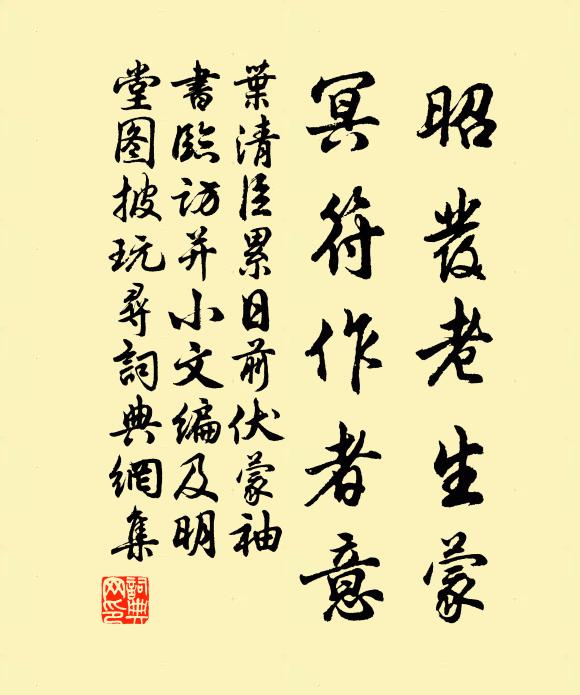 昭發老生蒙
冥符作者意
葉清臣累日前伏蒙袖
書臨訪并小文編及明
堂图披玩尋詞典網集
詞典網印